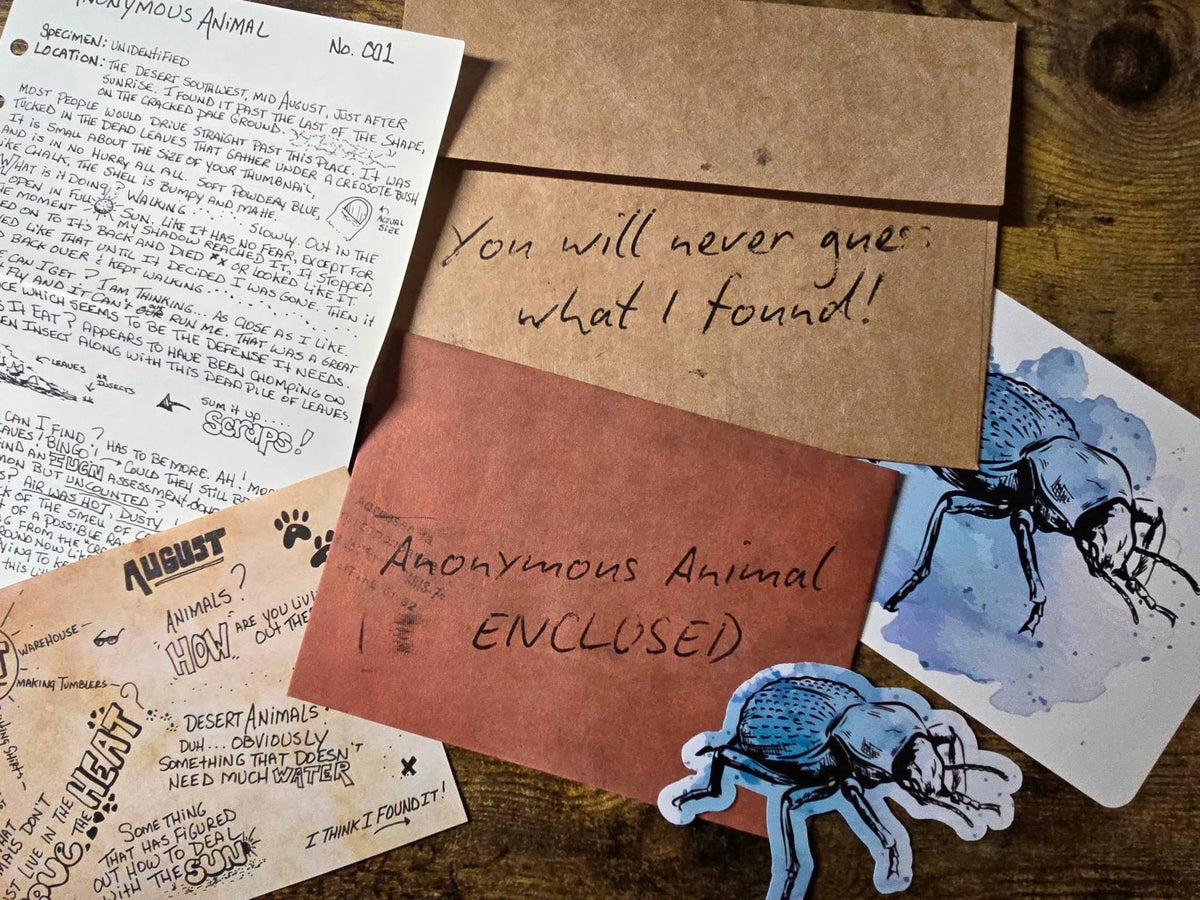 ANONYMOUS ANIMAL
No. 001
SPECIMEN: UNIDENTIFIED
LOCATION: THE DESERT SOUTHWEST, MID AUGUST, JUST AFTER
SUNRISE. I FOUND IT PAST THE LAST OF THE SHADE,
ON THE CRACKED PALE GROUND.
MOST PEOPLE WOULD DRIVE STRAIGHT PAST THIS PLACE. IT WAS
TUCKED IN THE DEAD LEAVES THAT GATHER UNDER A CREOSOTE BUSH
IT IS SMALL ABOUT THE SIZE OF YOUR THUMBNAIL
AND IS IN NO HURRY ALL ALL. SOFT POWDERY BLUE,
LIKE CHALK, THE SHELL IS BUMPY AND MATTE.
ACTUAL SIZE
WHAT IS IT DOING? WALKING........SLOWLY. OUT IN THE
OPEN IN FULL SUN. LIKE IT HAS NO FEAR, EXCEPT FOR
THE MOMENT MY SHADOW REACHED IT, IT STOPPED
ON TO IT'S BACK AND DIED XX OR LOOKED LIKE IT.
LIKE THAT UNTIL IT DECIDED I WAS GONE. THEN IT
BACK OVER & KEPT WALKING
CAN I GET? I AM THINKING... AS CLOSE AS I LIKE.
FLY AND IT CAN'T RUN ME. THAT WAS A GREAT
WHICH SEEMS TO BE THE DEFENSE IT NEEDS.
IT EAT? APPEARS TO HAVE BEEN CHOMPING ON
INSECT ALONG WITH THIS DEAD PILE OF LEAVES.
LEAVES
INSECTS
SUM IT UP....
SCRAPS!
CAN I FIND? HAS TO BE MORE. AH!
BINGO! COULD THEY STILL BE
AN IUCN ASSESSMENT DONE
BUT UNCOUNTED?
AIR WAS HOT, DUSTY
OF THE SMELL OF
OF A POSSIBLE
FROM THE
NOW
TO
You will never gues
what I found!
Anonymous Animal
ENCLOSED
AUGUST
ANIMALS?
HOW ARE YOU LIVI
OUT THE
WAREHOUSE
MAKING TUMBLERS
DESERT ANIMALS!
DUH... OBVIOUSLY
SOMETHING THAT DOESN'T
NEED MUCH WATER
X
SOMETHING
THAT HAS FIGURED
OUT HOW TO DEAL
WITH THE SUN
I THINK I FOUND IT!
DON'T
LIVE IN THE HEAT?
THE